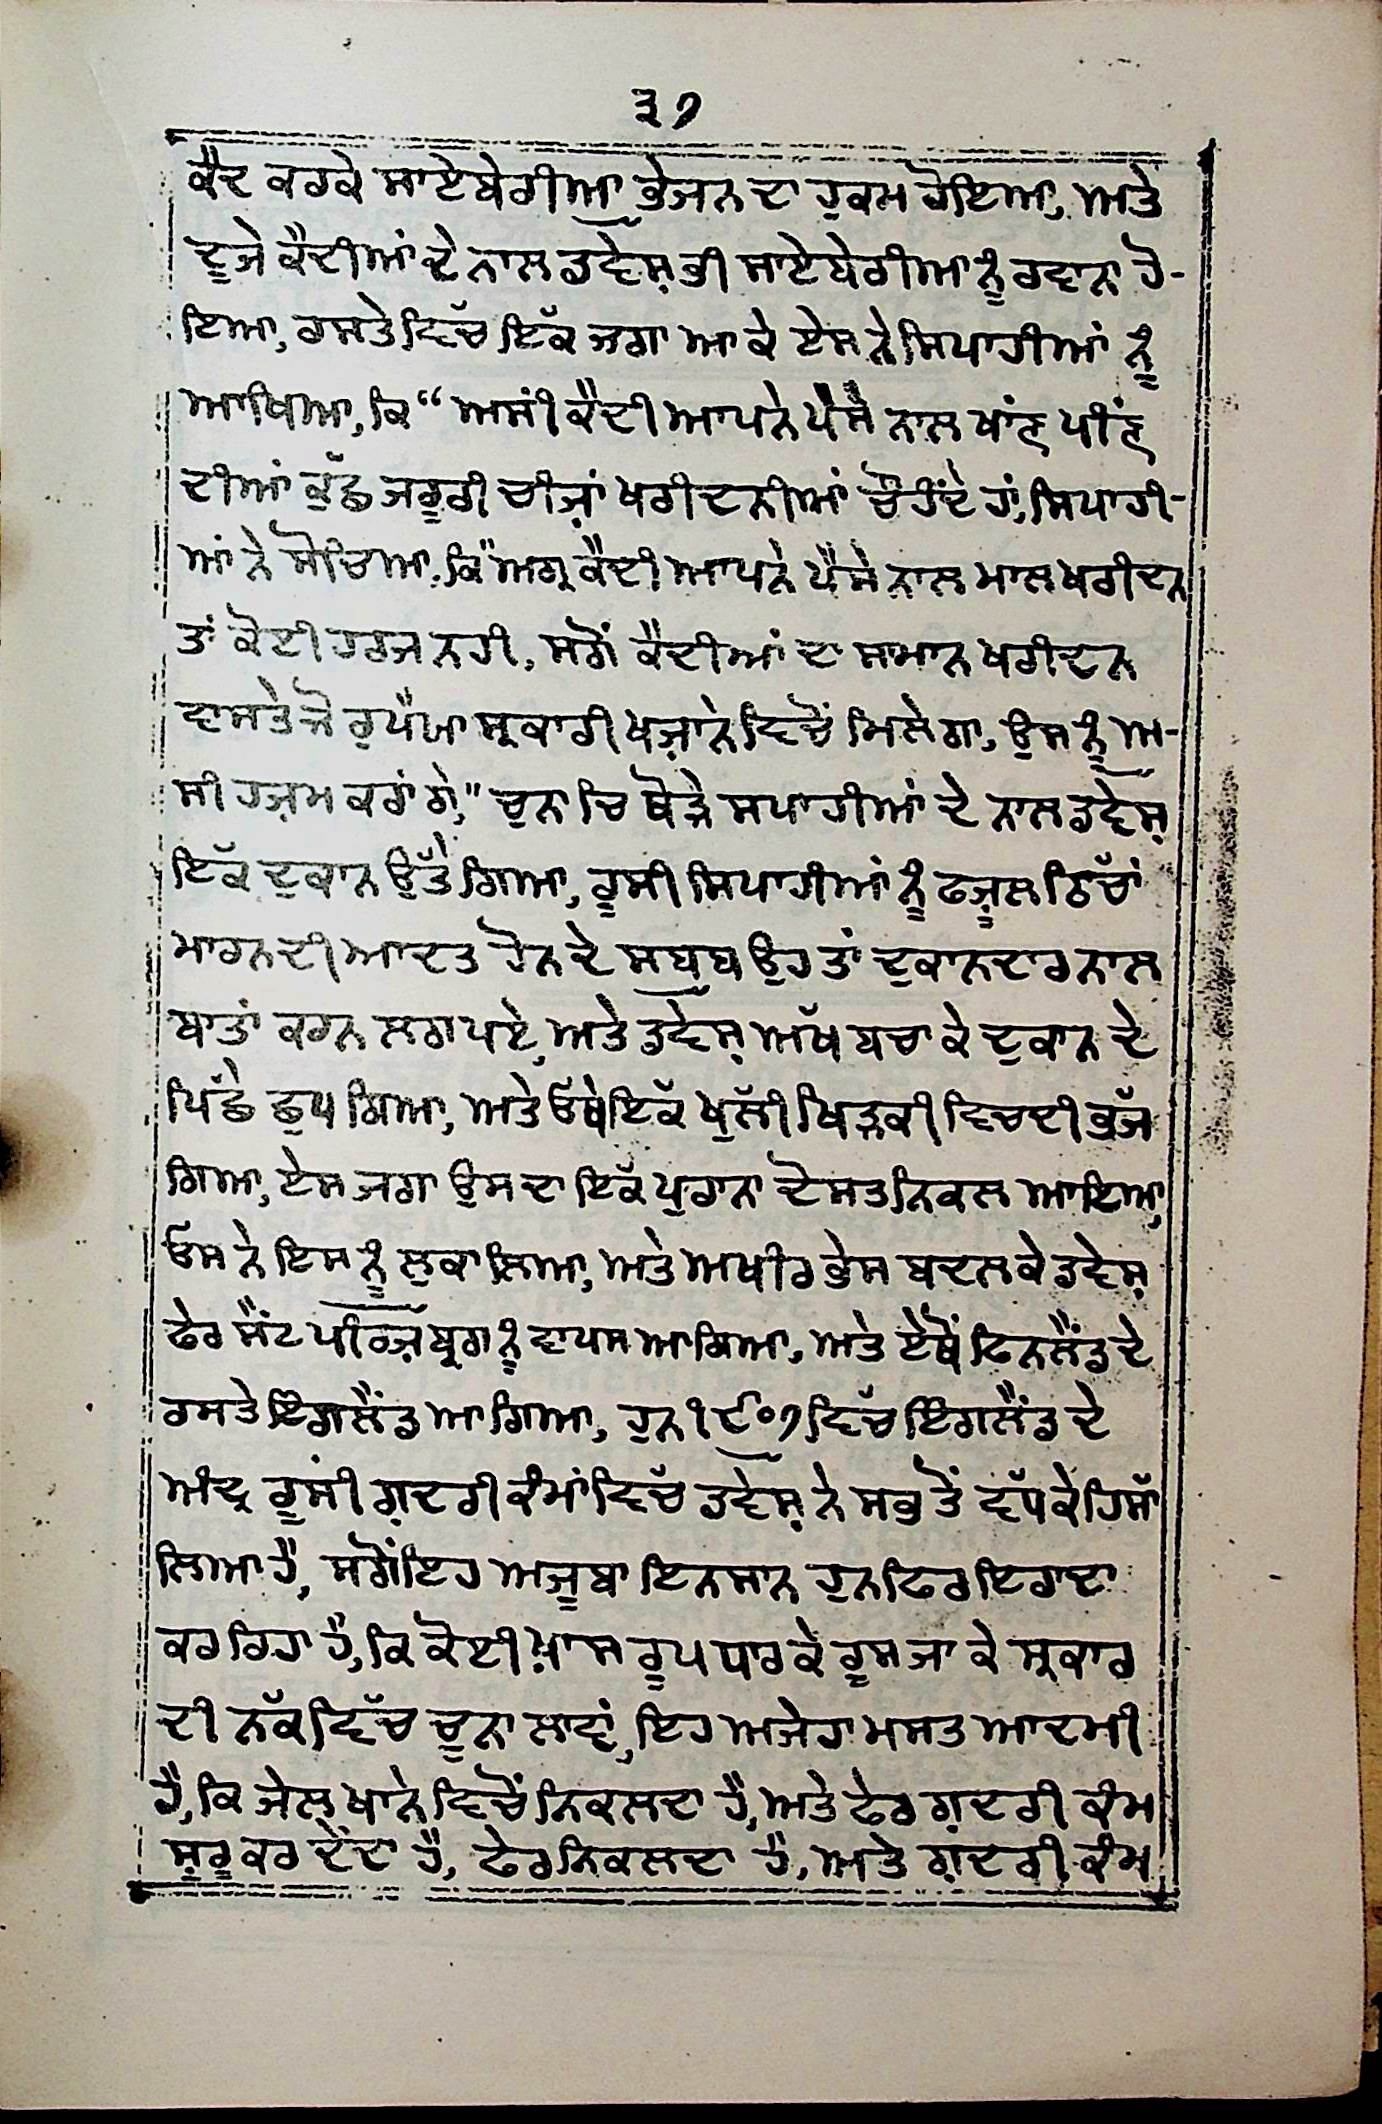 ੩੭
ਕੈਦ ਕਰਕੇ ਸਾਏਬੇਰੀਆ ਭੇਜਨ ਦਾ ਹੁਕਮ ਹੋਇਆ, ਅਤੇ
ਦੂਜੇ ਕੈਦੀਆਂ ਦੇ ਨਾਲ ਡਵੇਸ਼ ਭੀ ਸਾਏਬੇਰੀਆ ਨੂੰ ਰਵਾਨਾ ਹੋ-
ਇਆ, ਰਸਤੇ ਵਿੱਚ ਇੱਕ ਜਗਾ ਆ ਕੇ ਏਸ ਨੇ ਸਿਪਾਹੀਆਂ ਨੂੰ
ਆਖਿਆ, ਕਿ “ ਅਸੀਂ ਕੈਦੀ ਆਪਨੇ ਪੈਸੇ ਨਾਲ ਖਾਂਣ ਪੀਂਣ
ਦੀਆਂ ਕੁੱਛ ਜਰੂਰੀ ਚੀਜ਼ਾਂ ਖਰੀਦਨੀਆਂ ਚੌਹੰਦੇ ਹਾਂ, ਸਿਪਾਹੀ-
ਆਂ ਨੇ ਸੋਚਿਆ, ਕਿ “ਅਗ੍ਰ ਕੈਦੀ ਆਪਨੇ ਪੈਸੇ ਨਾਲ ਮਾਲ ਖਰੀਦਨ
ਤਾਂ ਕੋਈ ਹਰਜ ਨਹੀ, ਸਗੋਂ ਕੈਦੀਆਂ ਦਾ ਸਮਾਨ ਖਰੀਦਨ
ਵਾਸਤੇ ਜੋ ਰੁਪੈਯਾ ਸ੍ਰਕਾਰੀ ਖਜ਼ਾਨੇ ਵਿਚੋਂ ਮਿਲੇਗਾ, ਉਸ ਨੂੰ ਅ-
ਸੀ ਹਜ਼ਮ ਕਰਾਂਗੇ,” ਚੁਨਾਚਿ ਥੋੜੇ ਸਪਾਹੀਆਂ ਦੇ ਨਾਲ ਡਵੇਸ਼
ਇੱਕ ਦੁਕਾਨ ਉੱਤੇ ਗਿਆ, ਰੂਸੀ ਸਿਪਾਹੀਆਂ ਨੂੰ ਫਜ਼ੂਲ ਠਿੱਚਾਂ
ਮਾਰਨ ਦੀ ਆਦਤ ਹੋਨ ਦੇ ਸਬੱਬ ਉਹ ਤਾਂ ਦੁਕਾਨਦਾਰ ਨਾਲ
ਬਾਤਾਂ ਕਰਨ ਲਗ ਪਏ, ਅਤੇ ਡਵੇਸ਼ ਅੱਖ ਬਚਾ ਕੇ ਦੁਕਾਨ ਦੇ
ਪਿੱਛੇ ਛੁਪ ਗਿਆ, ਅਤੇ ਓਥੇ ਇੱਕ ਖੁੱਲੀ ਖਿੜਕੀ ਵਿਚਦੀ ਭੱਜ
ਗਿਆ, ਏਸ ਜਗਾ ਉਸ ਦਾ ਇੱਕ ਪੁਰਾਨਾ ਦੋਸਤ ਨਿਕਲ ਆਇਆ,
ਓਸ ਨੇ ਇਸ ਨੂੰ ਲੁਕਾ ਲਿਆ, ਅਤੇ ਅਖੀਰ ਭੇਸ ਬਦਲ ਕੇ ਡਵੇਸ਼
ਫੇਰ ਸੈਂਟ ਪੀਟਰਜ਼ਬ੍ਰਗ ਨੂੰ ਵਾਪਸ ਆ ਗਿਆ, ਅਤੇ ਏਥੋਂ ਫਿਨਲੈਂਡ ਦੇ
ਰਸਤੇ ਇੰਗਲੈਂਡ ਆ ਗਿਆ, ਹੁਨ ੧੯੦੭ ਵਿੱਚ ਇੰਗਲੈਂਡ ਦੇ
ਅੰਦ੍ਰ ਰੂਸੀ ਗ਼ਦਰੀ ਕੰਮਾਂ ਵਿੱਚ ਡਵੇਸ਼ ਨੇ ਸਭ ਤੋਂ ਵੱਧ ਕੇ ਹਿੱਸਾ
ਲਿਆ ਹੈ, ਸਗੋਂ ਇਹ ਅਜੂਬਾ ਇਨਸਾਨ ਹੁਨ ਫਿਰ ਇਰਾਦਾ
ਕਰ ਰਿਹਾ ਹੈ, ਕਿ ਕੋਈ ਖ਼ਾਸ ਰੂਪ ਧਾਰ ਕੇ ਰੂਸ ਜਾ ਕੇ ਸ੍ਰਕਾਰ
ਦੀ ਨੱਕ ਵਿੱਚ ਚੂਨਾ ਲਾਵਾਂ, ਇਹ ਅਜੇਹਾ ਮਸਤ ਆਦਮੀ
ਹੈ, ਕਿ ਜੇਲ੍ਹ ਖਾਨੇ ਵਿਚੋਂ ਨਿਕਲਦਾ ਹੈ, ਅਤੇ ਫੇਰ ਗ਼ਦਰੀ ਕੰਮ
ਸ਼ੁਰੂ ਕਰ ਦੇਂਦਾ ਹੈ, ਫੇਰ ਨਿਕਲਦਾ ਹੈ, ਅਤੇ ਗ਼ਦਰੀ ਕੰਮ